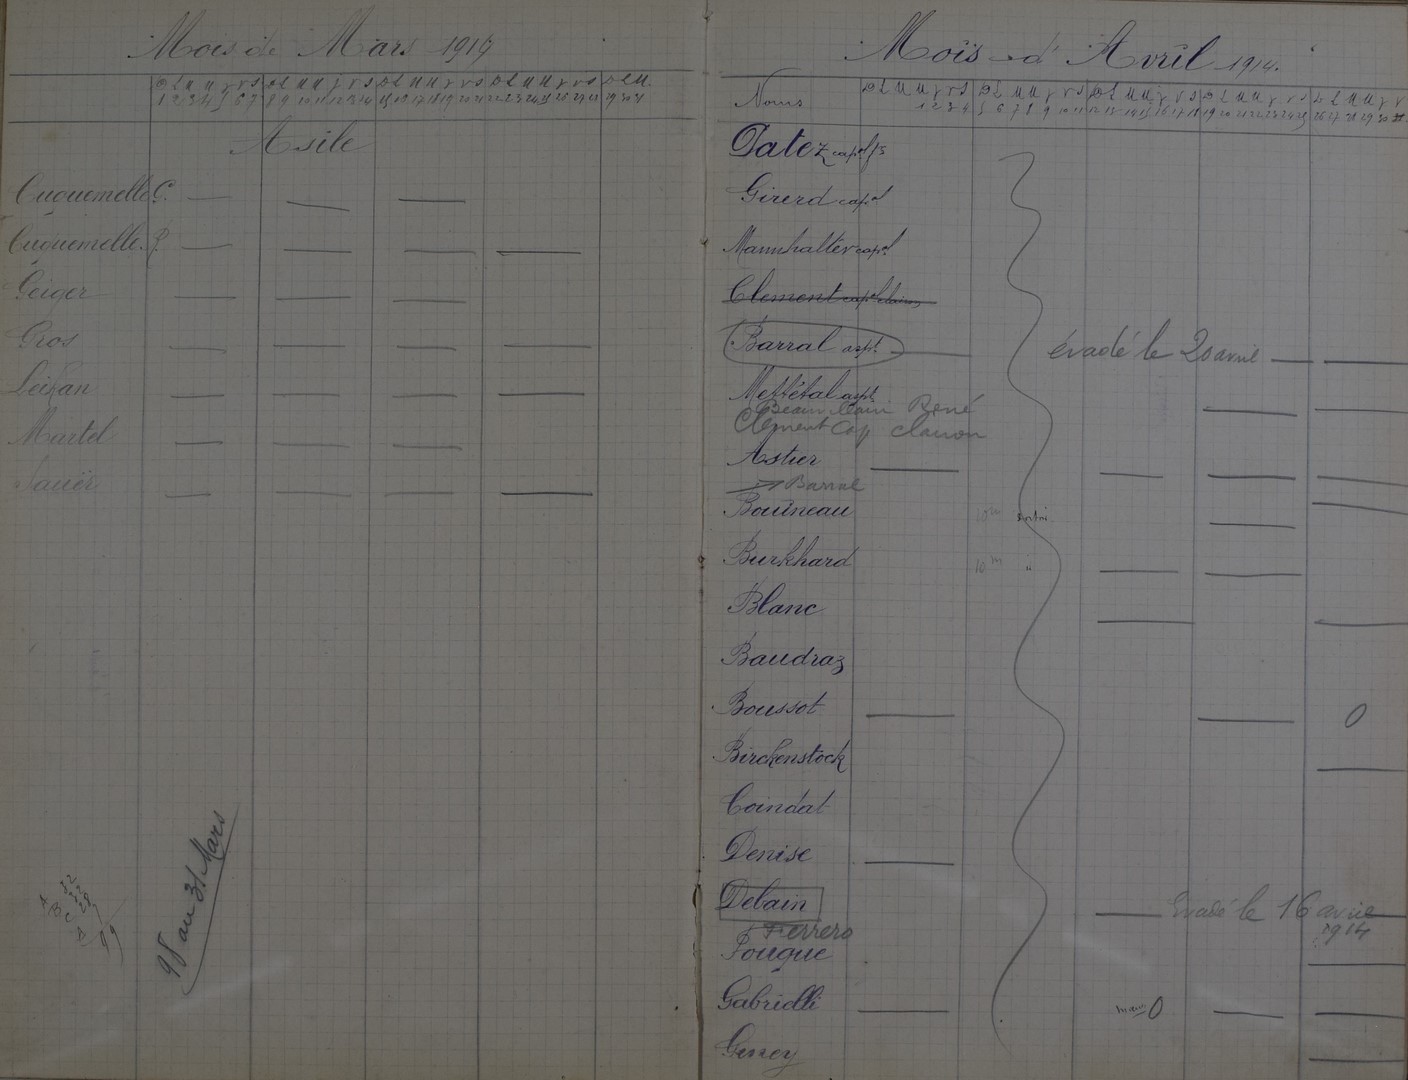 Mois de Mars 1914
D L M M J V S D L M M J V S D L M M J V S D L M M J V S D L M
1 2 3 4 5 6 7 8 9 10 11 12 13 14 15 16 17 18 19 20 21 22 23 24 25 26 27 28 29 30 31
Asile
Cuquemelle G.
Cuquemelle. P
Geiger
Gros
Martel
Sauër
98 au 31 Mars
A 32
B 32
C 28
Mois d'Avril 1914.
Noms
D L M M J V S D L M M J V S D L M M J V S D L M M J V S D L M M J V
1 2 3 4 5 6 7 8 9 10 11 12 13 14 15 16 17 18 19 20 21 22 23 24 25 26 27 28 29 30
Patez capal
Girerd capal
Mannhalter capal
Clement capal clairon
Barral aspt. évadé le 20 avril
Mettétal aspt
René
Clement Cap clairon
Astier
Barral
Bouneau 10m
Burkhard 10m "
Blanc
Baudraz
Boussot 0
Birckenstock
Coindat
Denise
Debain Evadé le 16 avril 1914
Ferrero
Fouque
Gabrielli 0
Geney